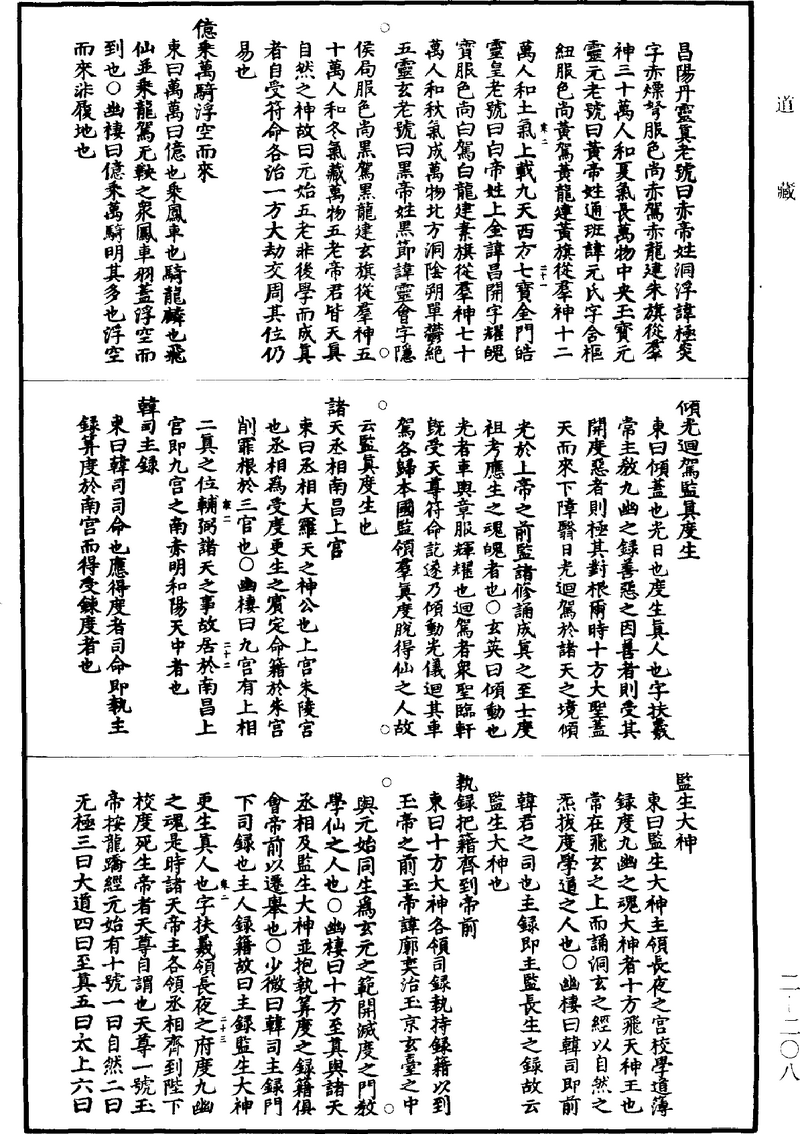 道藏
昌陽丹靈眞老號曰赤帝姓洞浮諱極炎
字赤熛弩服色尚赤駕赤龍建朱旗從羣
神三十萬人和夏氣長萬物中央玉寶元
靈元老號曰黃帝姓通班諱元氏字含樞
紐服色尚黃駕黃龍建黃旗從羣神十二
萬人和土氣上載九天西方七寶金門皓
靈皇老號曰白帝姓上金諱昌開字耀魄
寶服色尚白駕白龍建素旗從羣神七十
萬人和秋氣成萬物北方洞陰朔單鬱絕
五靈玄老號曰黑帝姓黑節諱靈會字隱
侯局服色尚黑駕黑龍建玄旗從羣神五
十萬人和冬氣藏萬物五老帝君皆天眞
自然之神故曰元始五老非後學而成眞
者自受符命各治一方大劫交周其位仍
易也
億乘萬騎浮空而來
東曰萬萬曰億也乘鳳車也騎龍麟也飛
仙並乘龍駕无鞅之衆鳳車羽蓋浮空而
到也○幽棲曰億乘萬騎明其多也浮空
而來非履地也
傾光迴駕監眞度生
東曰傾蓋也光日也度生眞人也字扶羲
常主教九幽之録善惡之因善者則受其
開度惡者則極其對根爾時十方大聖蓋
天而來下障翳日光迴駕於諸天之境傾
光於上帝之前監諸修誦成眞之至士度
祖考應生之魂魄者也○玄英曰傾動也
光者車輿章服輝耀也迴駕者衆聖臨軒
旣受天尊符命訖遂乃傾動光儀迴其車
駕各歸本國監領羣眞度脫得仙之人故
云監眞度生也
諸天丞相南昌上宮
東曰丞相大羅天之神公也上宮朱陵宮
也丞相爲受度更生之賓定命籍於朱宮
削罪根於三官也○幽棲曰九宮有上相
二眞之位輔弼諸天之事故居於南昌上
宮即九宮之南赤明和陽天中者也
韓司主錄
東曰韓司司命也應得度者司命即執主
録算度於南宮而得受鍊度者也
監生大神
東曰監生大神主領長夜之宮校學道薄
録度九幽之魂大神者十方飛天神王也
常在飛玄之上而誦洞玄之經以自然之
炁拔度學道之人也○幽棲曰韓司即前
韓君之司也主録即主監長生之録故云
監生大神也
執録把籍齊到帝前
東曰十方大神各領司録執持録籍以到
玉帝之前玉帝諱廓奕治玉京玄臺之中
與元始同生爲玄元之範開滅度之門教
學仙之人也○幽棲曰十方至眞與諸天
丞相及監生大神並抱執算度之録籍俱
會帝前以遷舉也○少微曰韓司主録門
下司録也主人録籍故曰主録監生大神
更生眞人也字扶羲領長夜之府度九幽
之魂是時諸天帝主各領丞相齊到陛下
校度死生帝者天尊自謂也天尊一號玉
帝按龍蹻經元始有十號一曰自然二曰
无極三曰大道四曰至眞五曰太上六曰
二-二〇八